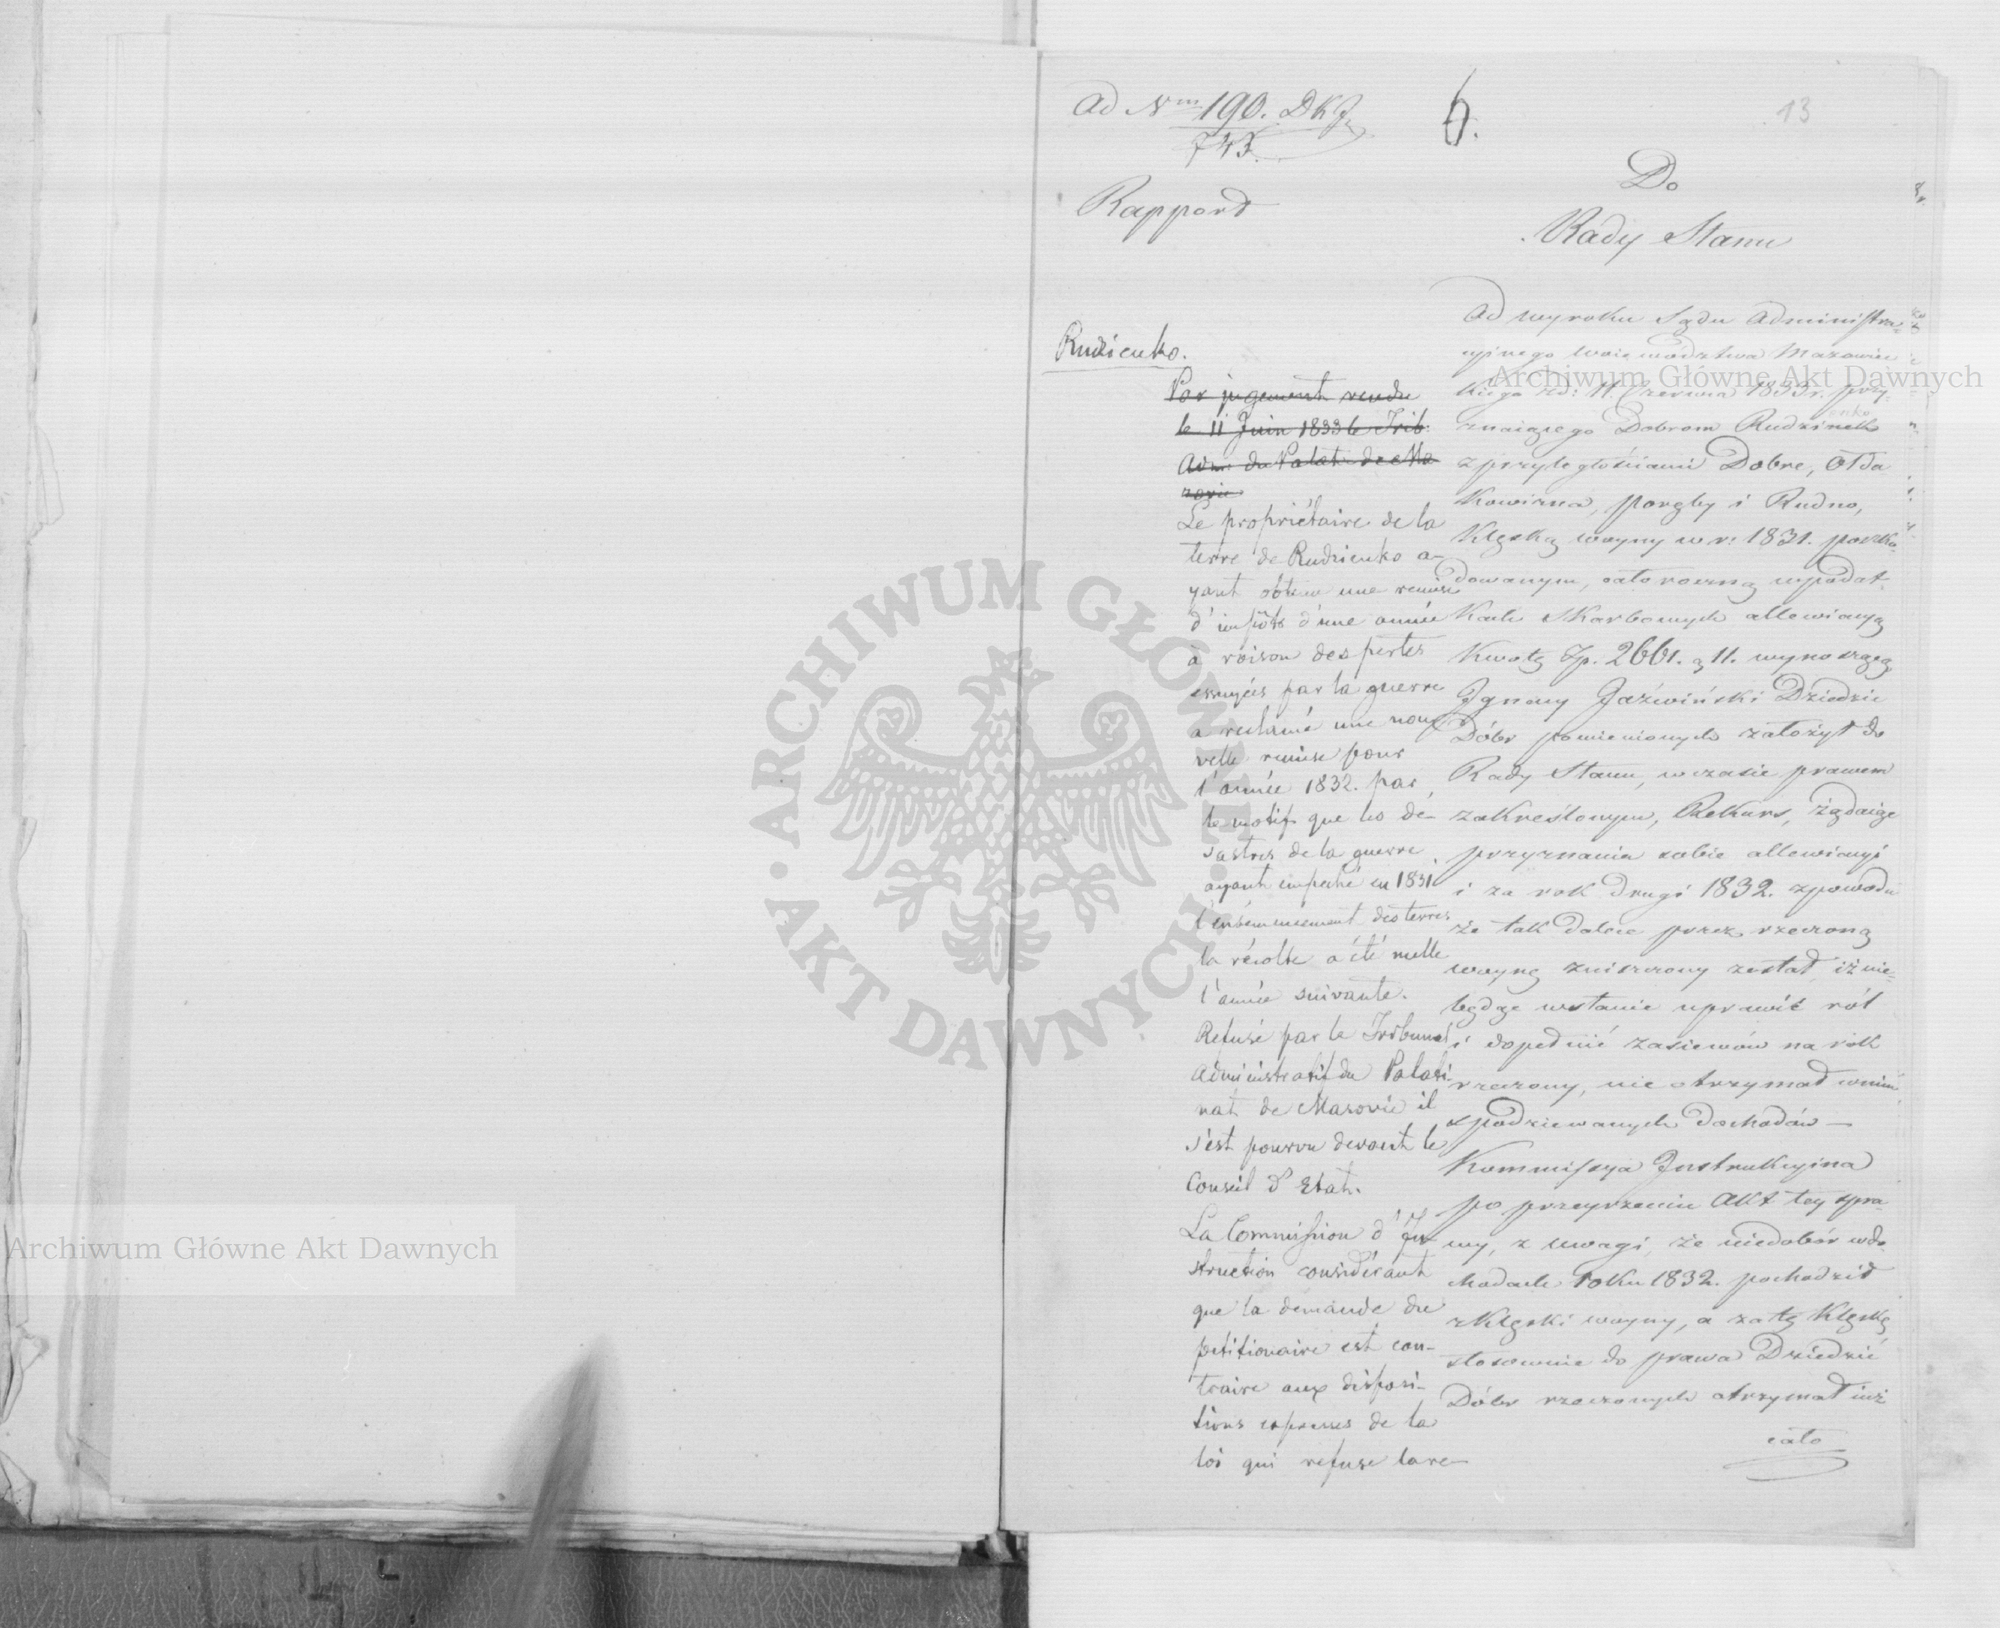 Ad Nm 190. DKJ.
743.
6.
13
Rapport
Do
Rady Stanu
Rudzienko.
Par jugement rendu
le 11 Juin 1833 le Trib:
Adm: du Palat: de Ma
zovie
Le propriétaire de la
terre de Rudzienko a-
yant obtenu une remise
d'impôts d'une année
à raison des pertes
essuyées par la guerre
a reclamé une nou-
velle remise pour
l'année 1832. par
le motif que les dé-
sastres de la guerre
ayant empeché en 1831
l'ensemencement des terres
la récolte a été nulle
l'année suivante.
Refusé par le Tribunal
administratif du Palati-
nat de Masovie il
s'est pourvu devant le
Conseil d'Etat.
La Commission d'In-
struction considérant
que la demande du
petitionaire est con-
traire aux disposi-
tions expresses de la
loi qui refuse la re-
Od wyroku Sądu Administra-
cyjnego Woiewództwa Mazowiec
kiego z d: 11. Czerwca 1833r. przy-
znaiącego Dobrom Rudzinek
enko
z przyległościami Dobre, Ołda
kowizna, Poręby i Rudno,
Klęską woyny w r: 1831. poszko-
dowanym, całoroczną w podat-
kach Skarbowych allewiacyą
Kwotę Zp. 2661. g 11. wynoszącą
Ignacy Jaźwiński Dziedzic
Dóbr pomienionych założył do
Rady Stanu, w czasie prawem
zakreślonym, Rekurs, żądaiąc
przyznania sobie allewiacyi
i za rok drugi 1832. z powodu
że tak dalece przez rzeczoną
woynę zniszczony został, iż nie-
będąc w stanie uprawić ról
i dopełnić zasiewów na rok
rzeczony, nie otrzymał w nim
spodziewanych dochodów —
Kommissya Instrukcyina
po przeyrzeniu Akt tey spra-
wy, z uwagi, że niedobór w do-
chodach roku 1832. pochodził
z Klęski woyny, a za tę Klęskę
stosownie do prawa Dziedzic
Dóbr rzeczonych otrzymał iuż
cało
Archiwum Główne Akt Dawnych
Archiwum Główne Akt Dawnych
ARCHIWUM GŁÓWNE AKT DAWNYCH